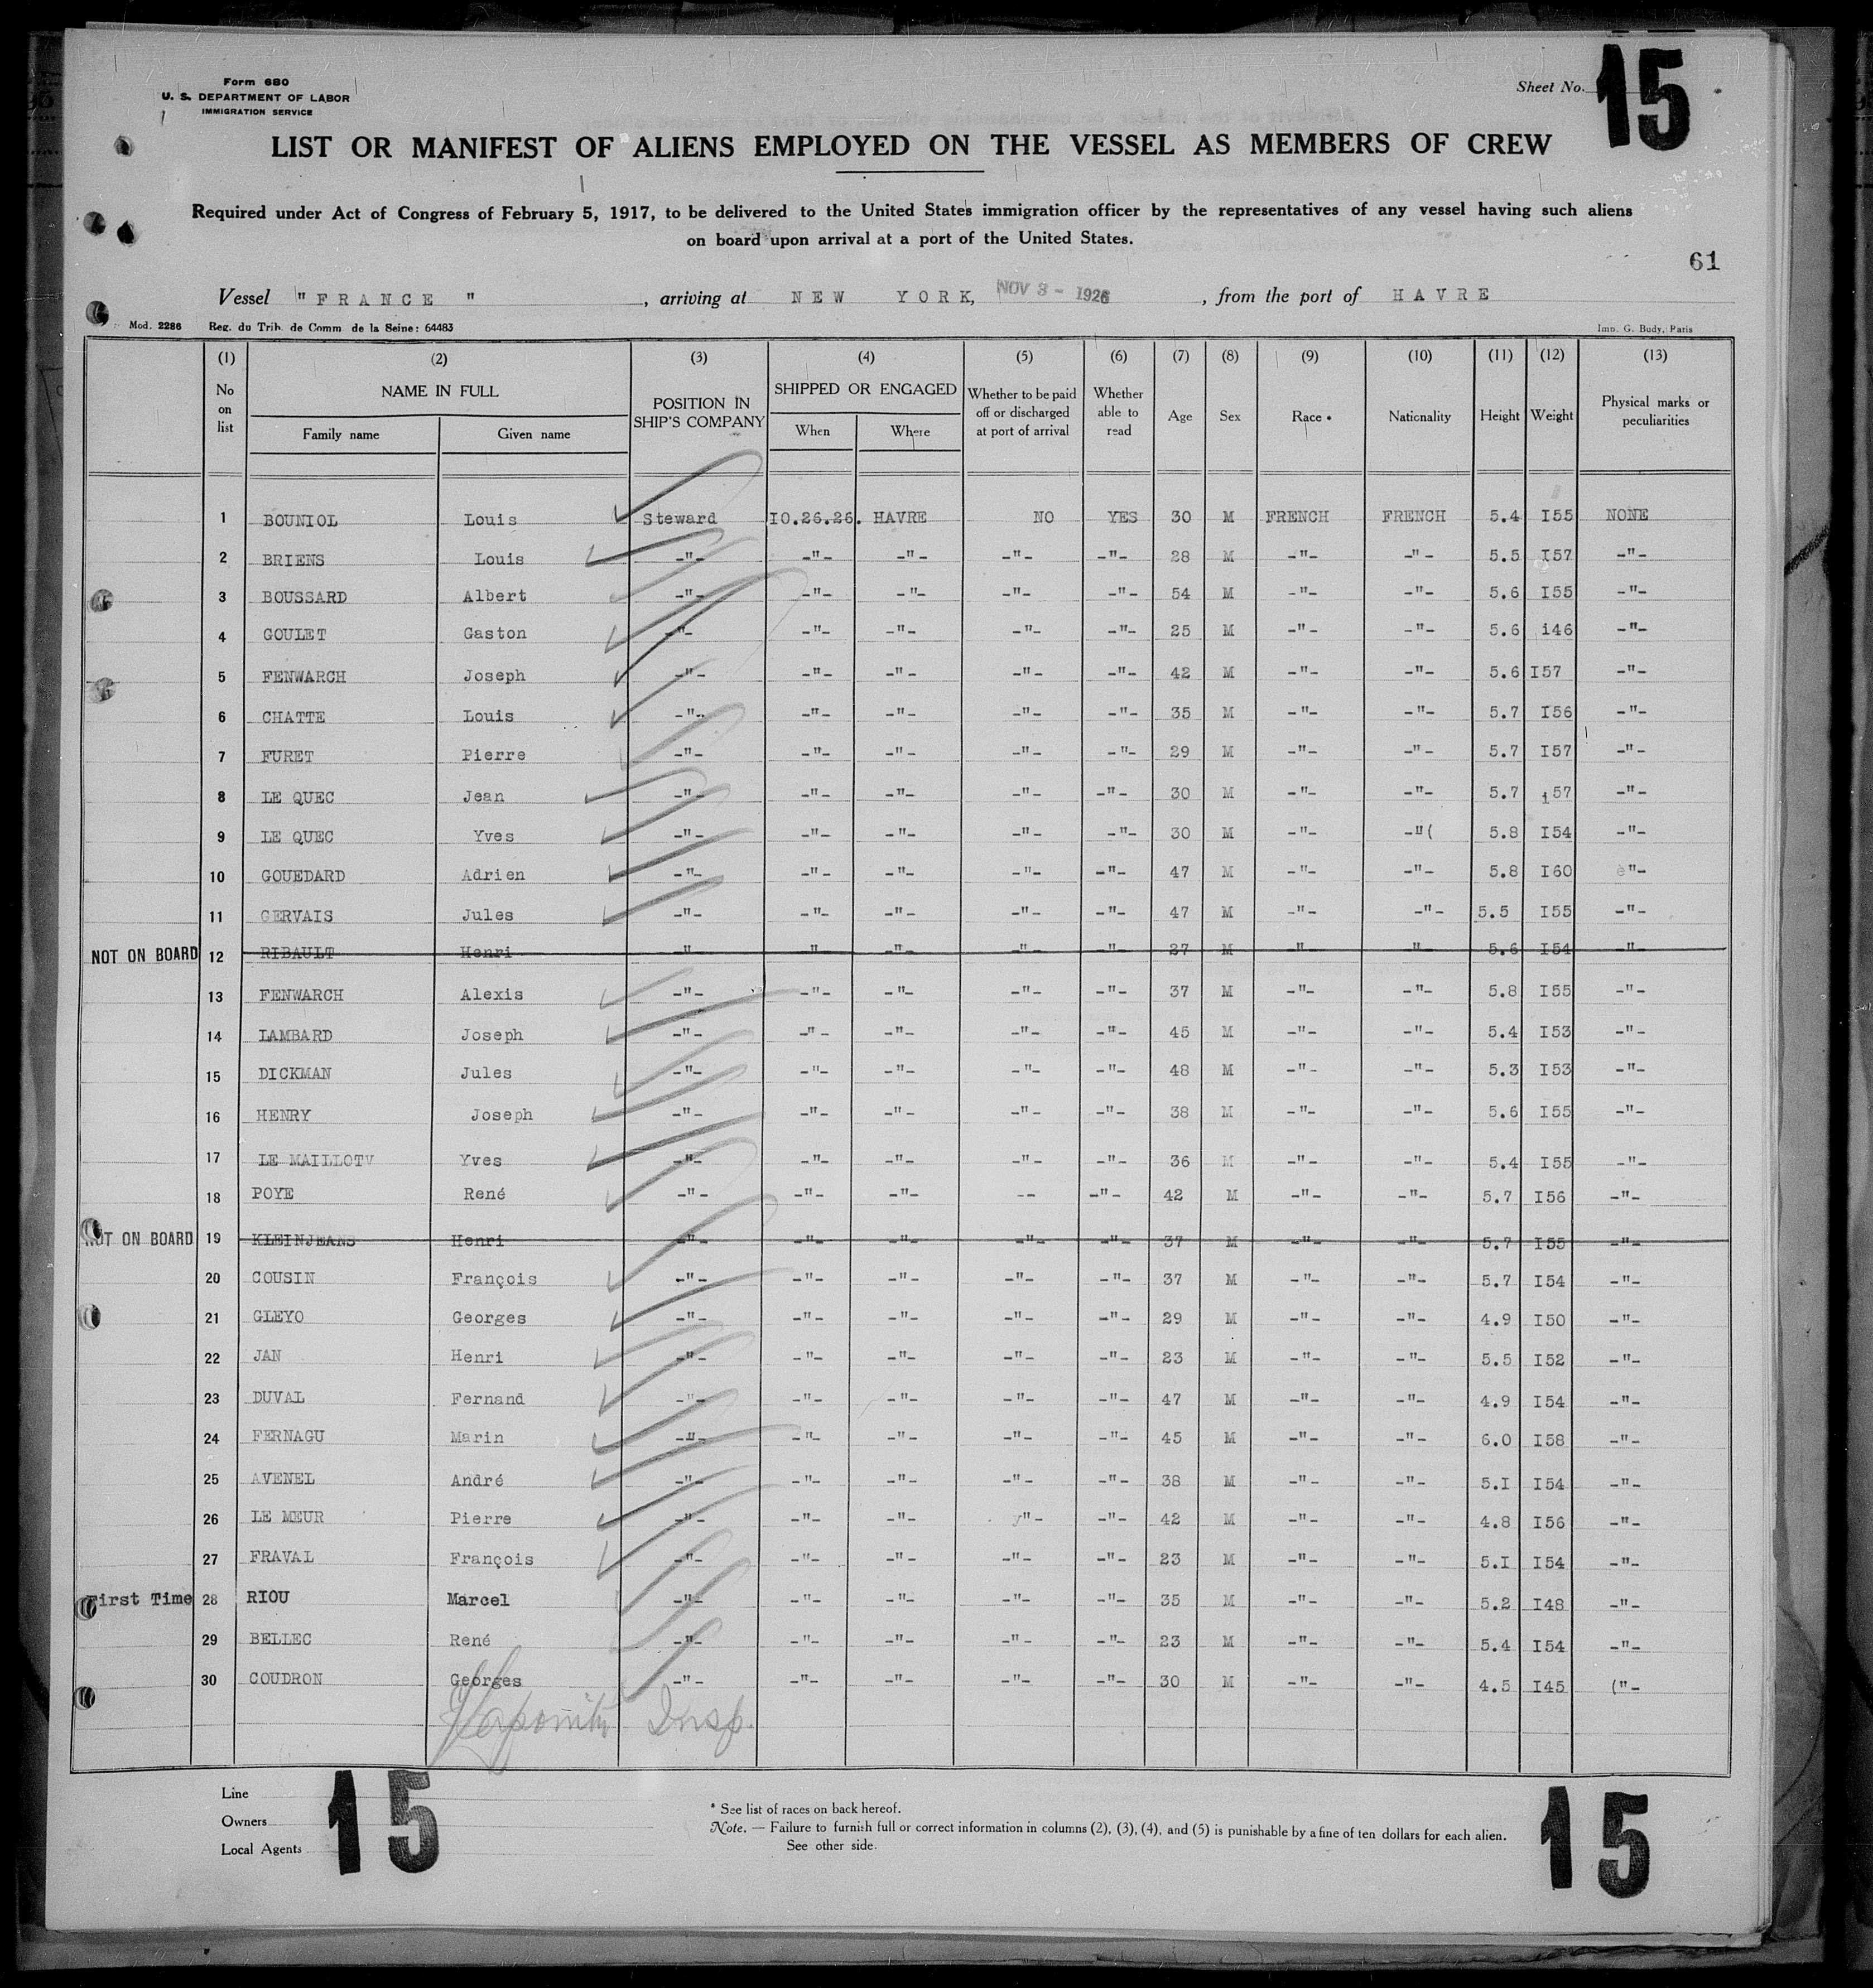 Form 680
U. S. DEPARTMENT OF LABOR
IMMIGRATION SERVICE
Sheet No. 15
LIST OR MANIFEST OF ALIENS EMPLOYED ON THE VESSEL AS MEMBERS OF CREW
Required under Act of Congress of February 5, 1917, to be delivered to the United States immigration officer by the representatives of any vessel having such aliens
on board upon arrival at a port of the United States.
61
Vessel "FRANCE", arriving at NEW YORK, NOV 3 - 1926, from the port of HAVRE
Mod. 2286 Reg. du Trib. de Comm. de la Seine: 64483 Imp. G. Budy, Paris
(1) (2) (3) (4) (5) (6) (7) (8) (9) (10) (11) (12) (13)
No on list NAME IN FULL Family name Given name POSITION IN SHIP'S COMPANY SHIPPED OR ENGAGED When Where Whether to be paid off or discharged at port of arrival Whether able to read Age Sex Race * Nationality Height Weight Physical marks or peculiarities
1 BOUNIOL Louis Steward IO.26.26. HAVRE NO YES 30 M FRENCH FRENCH 5.4 I55 NONE
2 BRIENS Louis -"- -"- -"- -"- -"- 28 M -"- -"- 5.5 I57 -"-
3 BOUSSARD Albert -"- -"- -"- -"- -"- 54 M -"- -"- 5.6 I55 -"-
4 GOULET Gaston -"- -"- -"- -"- -"- 25 M -"- -"- 5.6 i46 -"-
5 FENWARCH Joseph -"- -"- -"- -"- -"- 42 M -"- -"- 5.6 I57 -"-
6 CHATTE Louis -"- -"- -"- -"- -"- 35 M -"- -"- 5.7 I56 -"-
7 FURET Pierre -"- -"- -"- -"- -"- 29 M -"- -"- 5.7 I57 -"-
8 LE QUEC Jean -"- -"- -"- -"- -"- 30 M -"- -"- 5.7 i57 -"-
9 LE QUEC Yves -"- -"- -"- -"- -"- 30 M -"- -"( 5.8 I54 -"-
10 GOUEDARD Adrien -"- -"- -"- -"- -"- 47 M -"- -"- 5.8 I60 è"-
11 GERVAIS Jules -"- -"- -"- -"- -"- 47 M -"- -"- 5.5 I55 -"-
NOT ON BOARD 12 RIBAULT Henri -"- -"- -"- -"- -"- 27 M -"- -"- 5.6 I54 -"-
13 FENWARCH Alexis -"- -"- -"- -"- -"- 37 M -"- -"- 5.8 I55 -"-
14 LAMBARD Joseph -"- -"- -"- -"- -"- 45 M -"- -"- 5.4 I53 -"-
15 DICKMAN Jules -"- -"- -"- -"- -"- 48 M -"- -"- 5.3 I53 -"-
16 HENRY Joseph -"- -"- -"- -"- -"- 38 M -"- -"- 5.6 I55 -"-
17 LE MAILLOTV Yves -"- -"- -"- -"- -"- 36 M -"- -"- 5.4 I55 -"-
18 POYE René -"- -"- -"- -- -"- 42 M -"- -"- 5.7 I56 -"-
NOT ON BOARD 19 KLEINJEANS Henri -"- -"- -"- -"- -"- 37 M -"- -"- 5.7 I55 -"-
20 COUSIN François -"- -"- -"- -"- -"- 37 M -"- -"- 5.7 I54 -"-
21 GLEYO Georges -"- -"- -"- -"- -"- 29 M -"- -"- 4.9 I50 -"-
22 JAN Henri -"- -"- -"- -"- -"- 23 M -"- -"- 5.5 I52 -"-
23 DUVAL Fernand -"- -"- -"- -"- -"- 47 M -"- -"- 4.9 I54 -"-
24 FERNAGU Marin -"- -"- -"- -"- -"- 45 M -"- -"- 6.0 I58 -"-
25 AVENEL André -"- -"- -"- -"- -"- 38 M -"- -"- 5.I I54 -"-
26 LE MEUR Pierre -"- -"- -"- y"- -"- 42 M -"- -"- 4.8 I56 -"-
27 FRAVAL François -"- -"- -"- -"- -"- 23 M -"- -"- 5.I I54 -"-
First Time 28 RIOU Marcel -"- -"- -"- -"- -"- 35 M -"- -"- 5.2 I48 -"-
29 BELLEC René -"- -"- -"- -"- -"- 23 M -"- -"- 5.4 I54 -"-
30 COUDRON Georges -"- -"- -"- -"- -"- 30 M -"- -"- 4.5 I45 ("-
Insp.
Line
Owners
Local Agents
15
* See list of races on back hereof.
Note. — Failure to furnish full or correct information in columns (2), (3), (4), and (5) is punishable by a fine of ten dollars for each alien.
See other side.
15